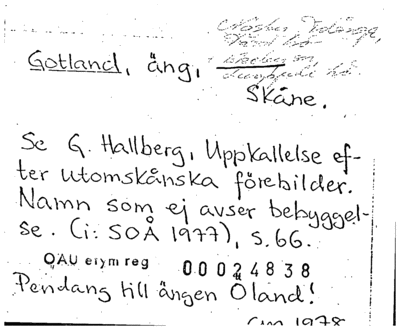 Gotland, äng,
Skåne.
Se G. Hallberg, Uppkallelse ef-
ter utomskånska förebilder.
Namn som ej avser bebyggel-
se. (i: SOÅ 1977), s. 66.
OAU eiym reg 00024838
Pendang till ängen Öland!
1978